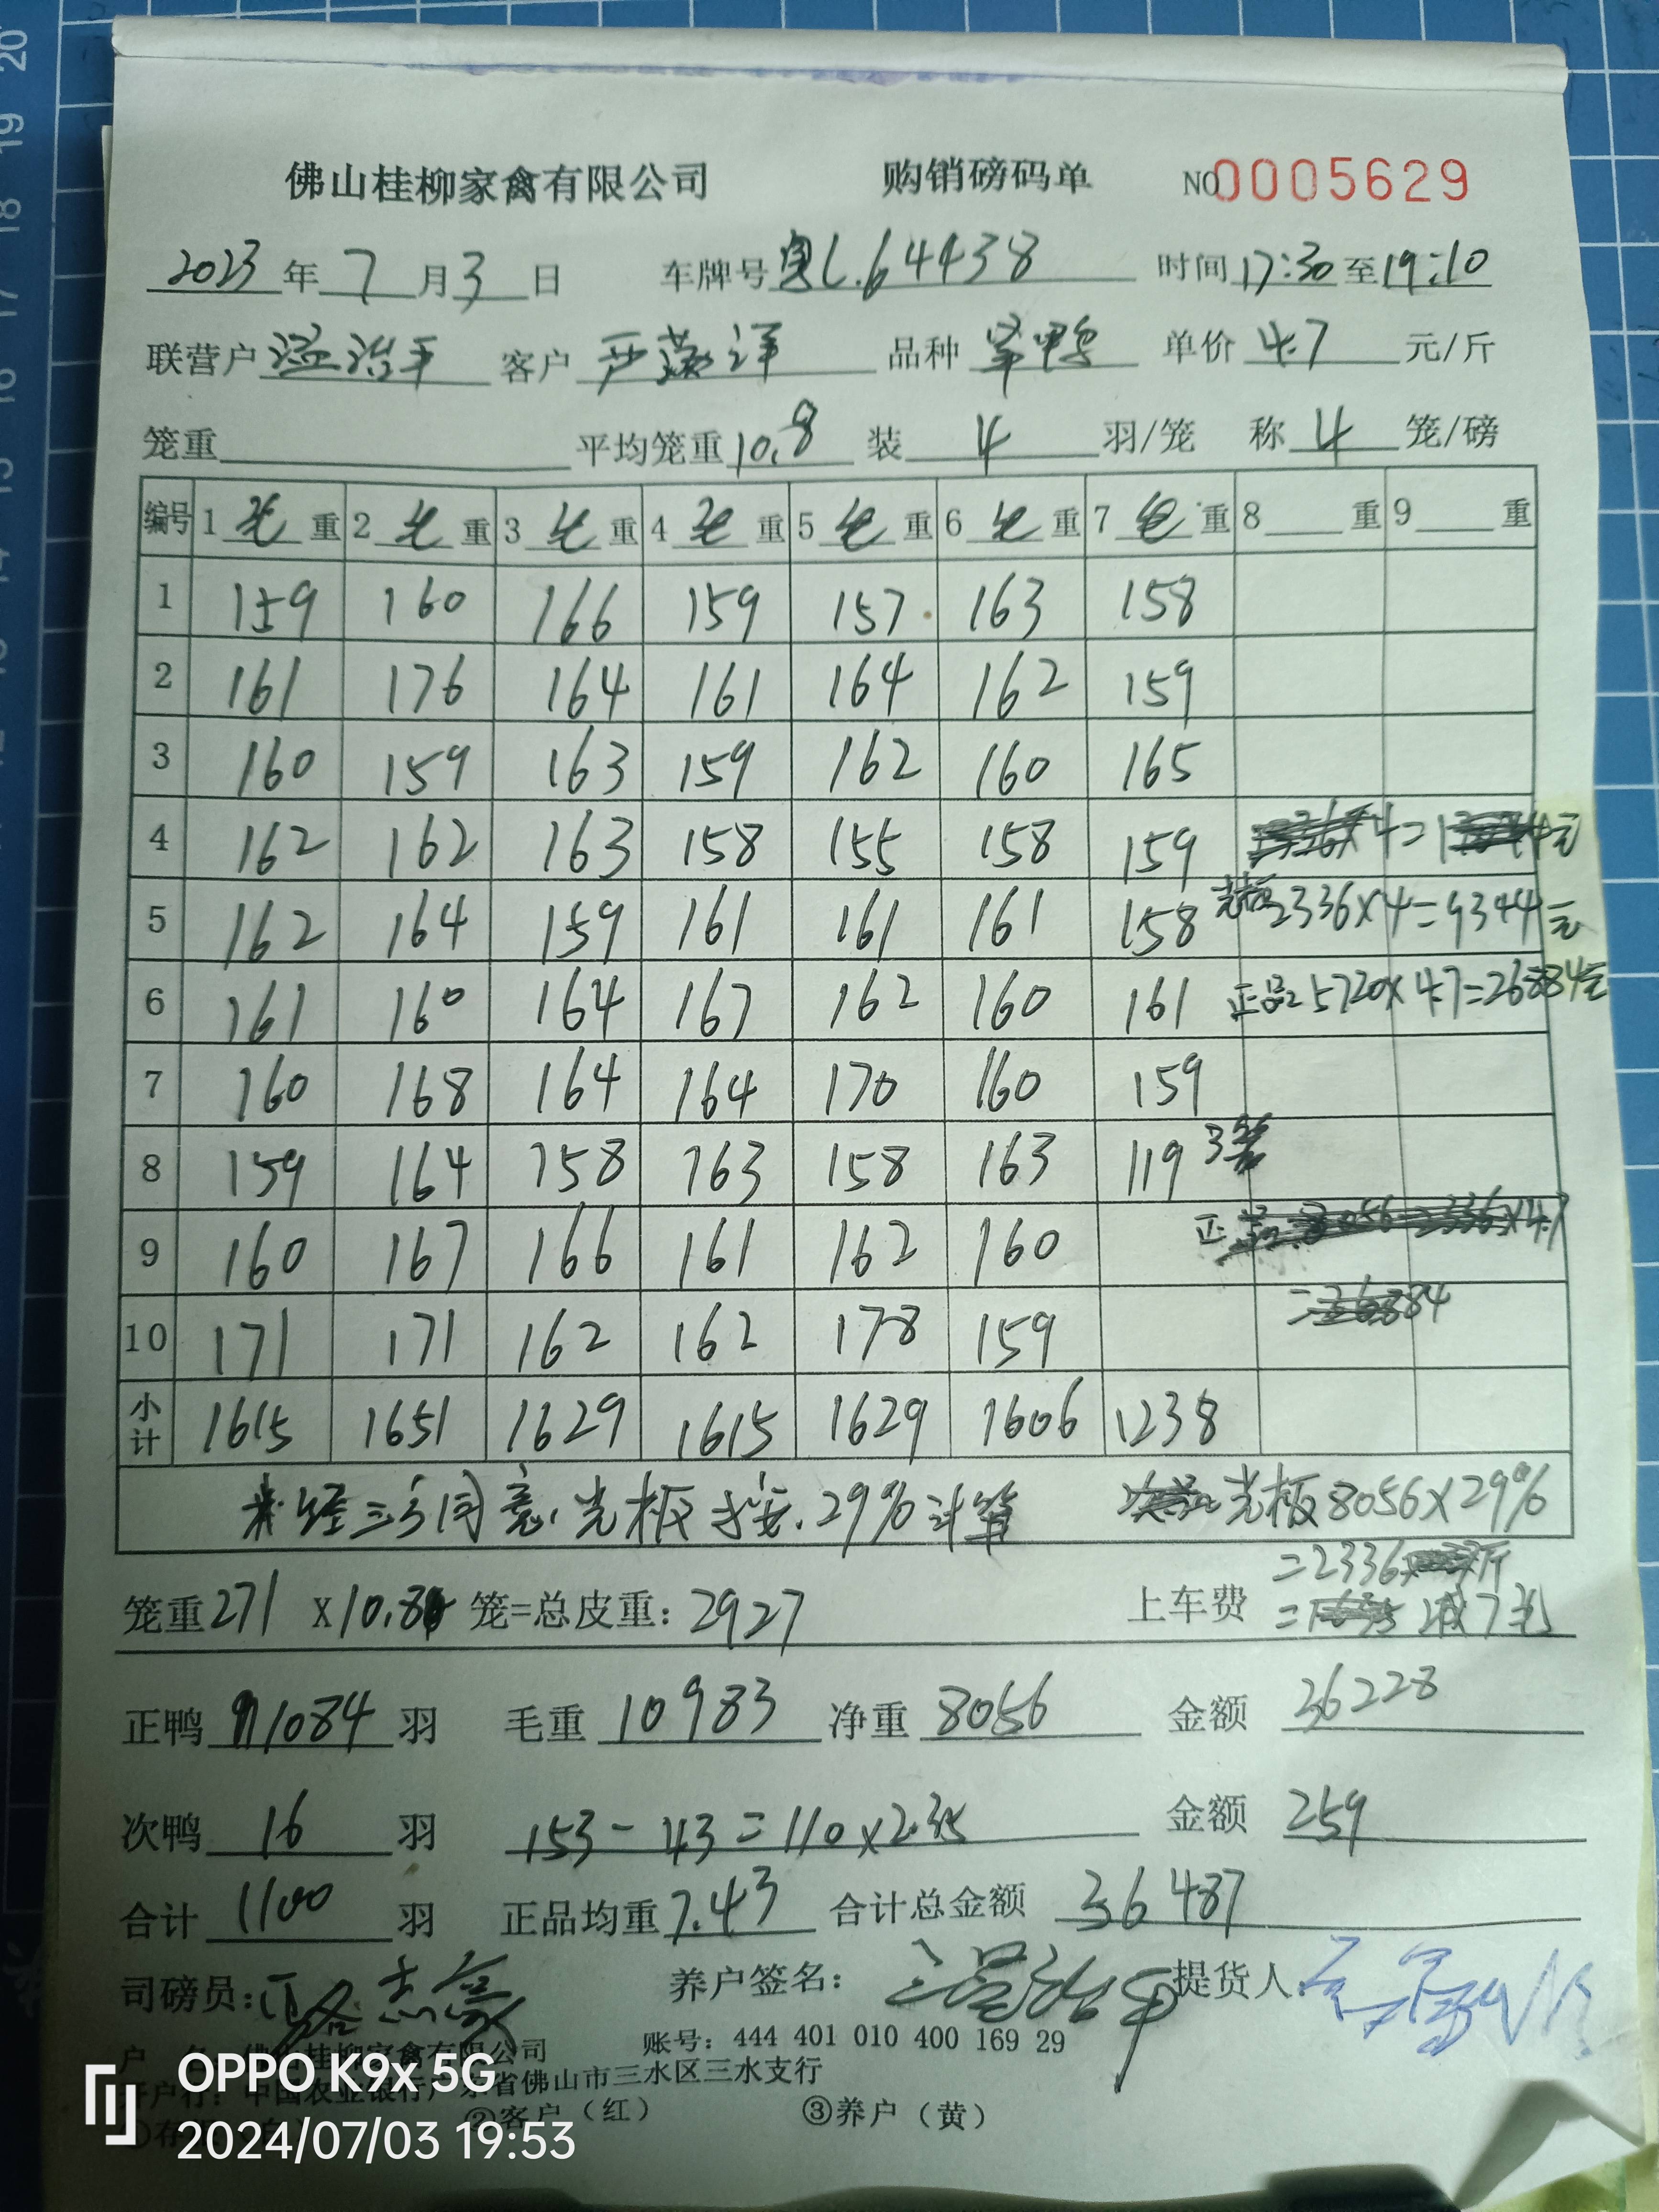 佛山桂柳家禽有限公司 购销磅码单 NO0005629
2023年7月3日 车牌号粤L.64438 时间17:30至19:10
联营户温治平 客户严 洋 品种 鸭 单价4.7元/斤
笼重 平均笼重10.8 装4羽/笼 称4笼/磅
编号 1毛重 2毛重 3毛重 4毛重 5毛重 6毛重 7毛重 8 重 9 重
1 159 160 166 159 157 163 158
2 161 176 164 161 164 162 159
3 160 159 163 159 162 160 165
4 162 162 163 158 155 158 159
5 162 164 159 161 161 161 158 光板2336×4=9344元
6 161 160 164 167 162 160 161 正品5720×4.7=26884元
7 160 168 164 164 170 160 159
8 159 164 158 163 158 163 119 3笼
9 160 167 166 161 162 160
10 171 171 162 162 178 159
小计 1615 1651 1629 1615 1629 1606 1238
经三方同意,光板按.29%计算 光板8056×29%
=2336 斤
笼重271 X10.8 笼=总皮重:2927 上车费 减7毛
正鸭1084羽 毛重10983 净重8056 金额36228
次鸭16羽 153-43=110×2.35 金额259
合计1100羽 正品均重7.43 合计总金额36487
司磅员: 志豪 养户签名:温治平 提货人
户 名:佛山桂柳家禽有限公司 账号:444 401 010 400 169 29
开户行:中国农业银行广东省佛山市三水区三水支行
②客户(红) ③养户(黄)
OPPO K9x 5G
2024/07/03 19:53